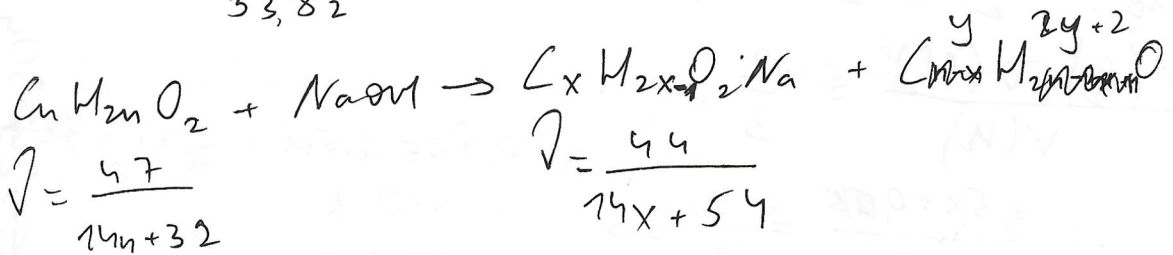 53,82
y 2y+2
CnH2nO2 + NaOH → CxH2x-1O2Na + C H2 O
ν = 47/(14n+32) ν = 44/(14x+54)